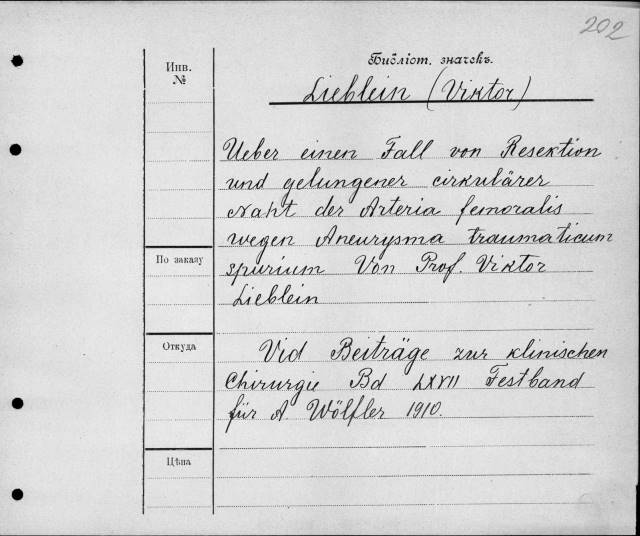 202
Библіот. значекъ.
Инв.
№
Lieblein (Viktor)
Ueber einen Fall von Resektion
und gelungener cirkulärer
Naht der Arteria femoralis
wegen Aneurysma traumaticum
По заказу
spurium Von Prof. Viktor
Lieblein
Откуда
Vid Beiträge zur klinischen
Chirurgie Bd LXVII Festband
für A Wölfler 1910.
Цѣна